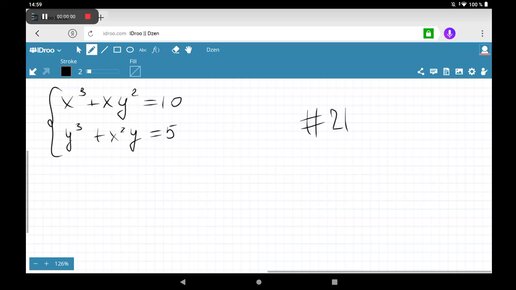 14:59
100 %
00:00:00
idroo.com IDroo || Dzen
IDroo
Abc
f(x)
Dzen
Stroke
Fill
2
x³+xy²=10
y³+x²y=5
#21
126%